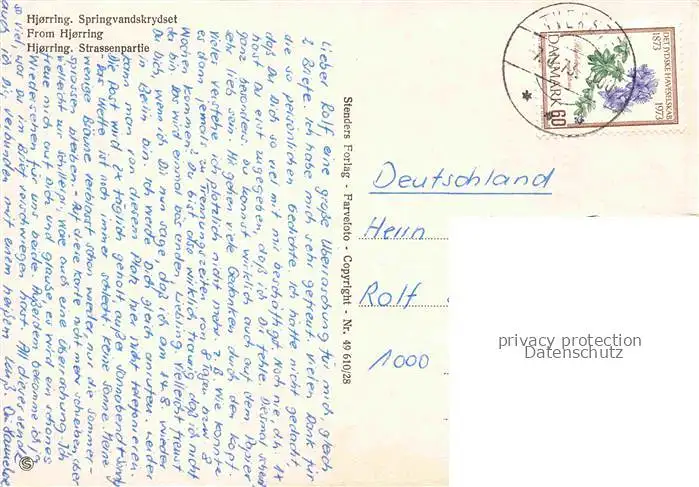 Hjørring. Springvandskrydset
From Hjørring
Hjørring. Strassenpartie
Lieber Rolf, eine große Überraschung für mich, gleich
2 Briefe. Ich habe mich sehr gefreut. Vielen Dank für
die so persönlichen Gedichte. Ich hätte nicht gedacht,
daß Du Dich so viel mit mir beschäftigst. Noch nie, d.h. 1x
hast Du erst zugegeben, daß ich Dir fehle. Diesmal schon
ganz besonders. Du kannst wirklich auch auf dem Papier
sehr lieb sein. Mir gehen viele Gedanken durch den Kopf.
Vieles verstehe ich plötzlich nicht mehr. z.B. Wie konnte
es denn jemals zu Trennungszeiten von 8 Tagen bzw 8
Wochen kommen? Du bist also wirklich traurig, daß ich nicht
da bin. Das wird einmal das andere, Liebling. Vielleicht freust
Du Dich, wenn ich Dir nun sage, daß ich am 8. wieder
in Berlin bin. Ich werde Dich gleich anrufen. Leider
kann man von diesem Platz hier nicht telefonieren.
Die Post wird 2x täglich geholt außer Sonnabend + Sonntag
Das Wetter ist noch immer schlecht. Keine Sonne. Meine
wenige Bräune verblasst schon wieder, nur die Sommer-
sprossen bleiben. Auf diese Karte nicht mehr schreiben, aber
vielleicht zur wäre auch eine Überraschung. Ich
freue mich auf Dich und glaube, es wird ein schönes
Wiedersehen für uns beide. Außerdem bekomme ich ja
was Du im Brief verschwiegen hast. All dieser
so viel,
auch ich Dir. Verbunden mit einem herzlichen Kuß Deine
Stenders Forlag - Farvefoto - Copyright - Nr. 49 610/28
DET JYDSKE HAVESELSKAB
1873 1973
DANMARK 60
Deutschland
Herrn
Rolf
1000
privacy protection
Datenschutz